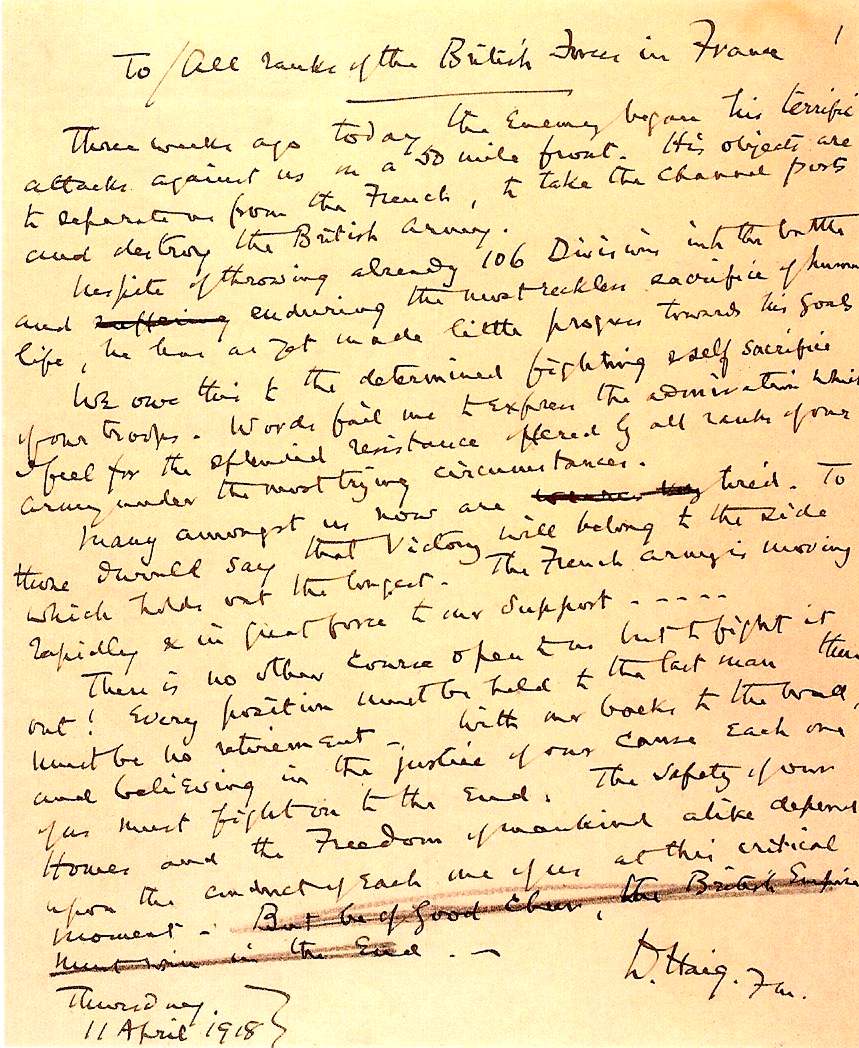 1
To / All ranks of the British Forces in France
Three weeks ago today the Enemy began his terrific
attacks against us on a 50 mile front. His objects are
to separate us from the French, to take the Channel ports
and destroy the British Army.
Inspite of throwing already 106 Divisions into the battle
and suffering enduring the most reckless sacrifice of human
life, he has as yet made little progress towards his goals
We owe this to the determined fighting & self sacrifice
of our troops. Words fail me to express the admiration which
I feel for the splendid resistance offered by all ranks of our
army under the most trying circumstances.
Many amongst us now are tired. To
those I would say that Victory will belong to the side
which holds out the longest. The French Army is moving
rapidly & in great force to our support - - - - -
There is no other course open to us but to fight it
out! Every position must be held to the last man there
must be no retirement - With our backs to the wall,
and believing in the justice of our cause each one
of us must fight on to the end. The safety of our
Homes and the Freedom of mankind alike depend
upon the conduct of each one of us at this critical
moment - But be of Good Cheer, the British Empire
must win in the End. -
D. Haig. F.M.
Thursday.
11 April 1918 }